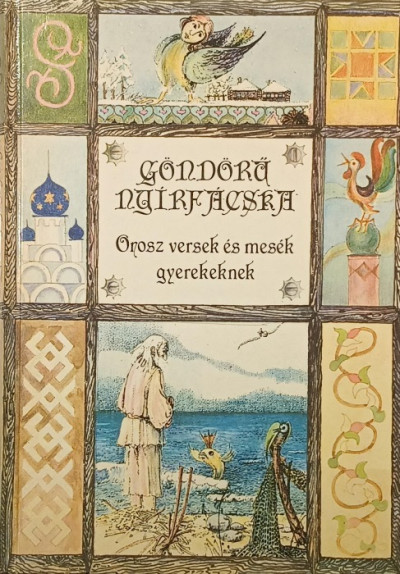 GÖNDÖRŰ
NYÍRFÁCSKA
Orosz versek és mesék
gyerekeknek